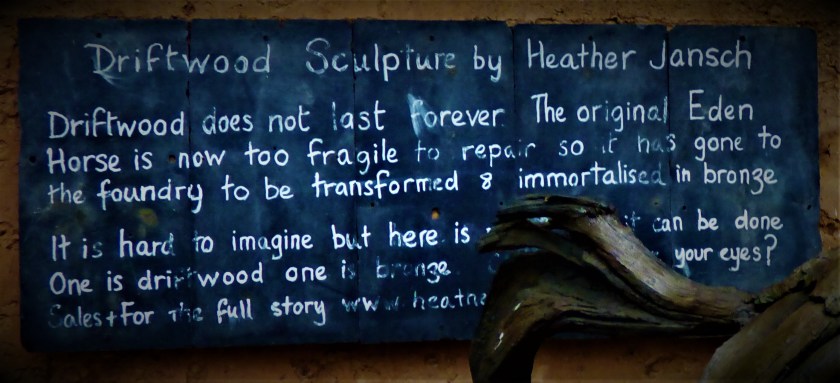 Driftwood Sculpture by Heather Jansch
Driftwood does not last forever The original Eden
Horse is now too fragile to repair so it has gone to
the foundry to be transformed & immortalised in bronze
It is hard to imagine but here is it can be done
One is driftwood one is bronze your eyes?
Sales + For the full story www.heathe